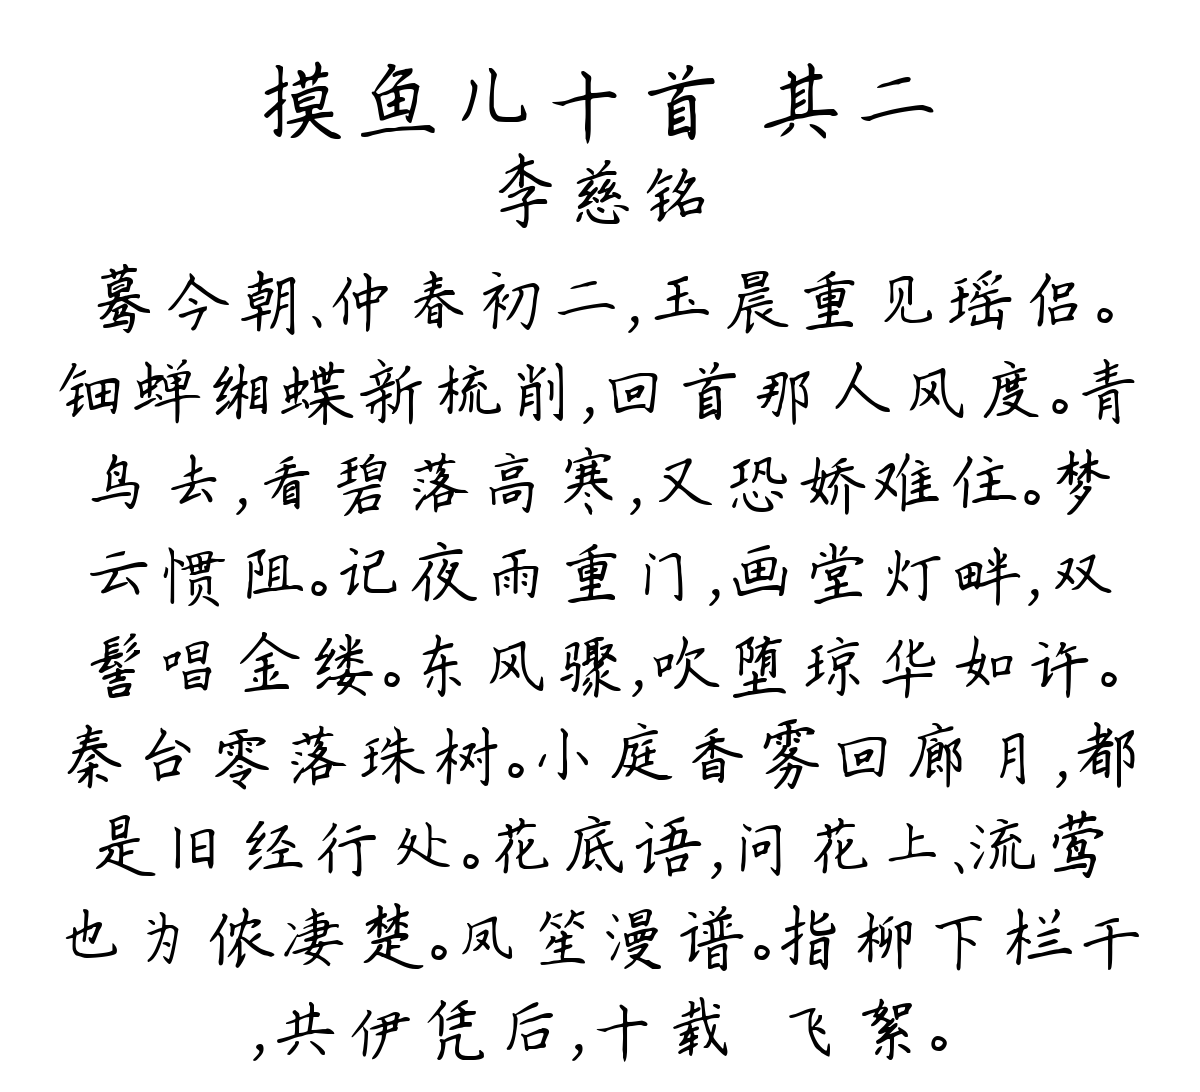 摸鱼儿十首 其二
李慈铭
蓦今朝、仲春初二,玉晨重见瑶侣。
钿蝉缃蝶新梳削,回首那人风度。青
鸟去,看碧落高寒,又恐娇难住。梦
云惯阻。记夜雨重门,画堂灯畔,双
髻唱金缕。东风骤,吹堕琼华如许。
秦台零落珠树。小庭香雾回廊月,都
是旧经行处。花底语,问花上、流莺
也为侬凄楚。凤笙漫谱。指柳下栏干
,共伊凭后,十载 飞絮。